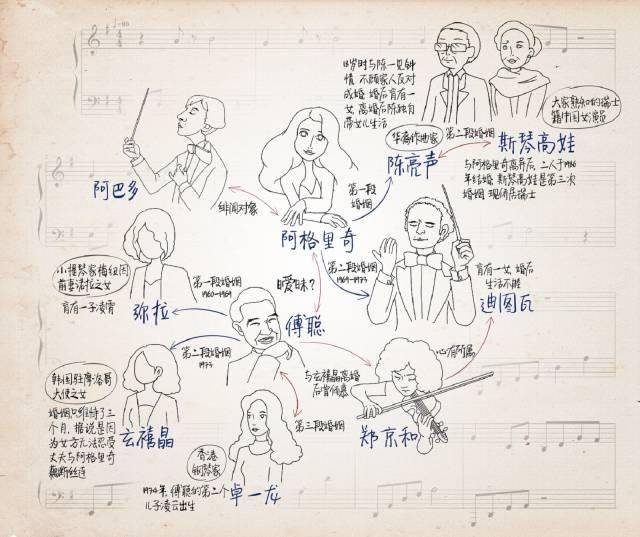 18岁时与陈一见钟
情 不顾家人反对
成婚 婚后育有一
女 离婚后陈独自
带女儿生活
大家熟知的瑞士
籍中国女演员
华裔作曲家
第二段婚姻
斯琴高娃
陈亮声
与阿格里奇离异后 二人于1986
年结婚 斯琴高娃是第三次
婚姻 现俩居瑞士
阿巴多
绯闻对象
第一段
婚姻
阿格里奇
小提琴家梅纽因
前妻诺拉之女
育有一子凌霄
弥拉
第一段婚姻
1960-1969
暧昧?
第二段婚姻
1969-1973
育有一女 婚后
生活不睦
迪图瓦
傅聪
第二段婚姻
1973
心有所属
韩国驻摩洛哥
大使之女
婚姻只维持了三
个月, 据说是因
为女方无法忍受
丈夫与阿格里奇
藕断丝连
玄禧晶
与玄禧晶离婚
后曾倾慕
第三段婚姻
郑京和
香港
钢琴家
1974年, 傅聪的第二个
儿子凌云出生
卓一龙